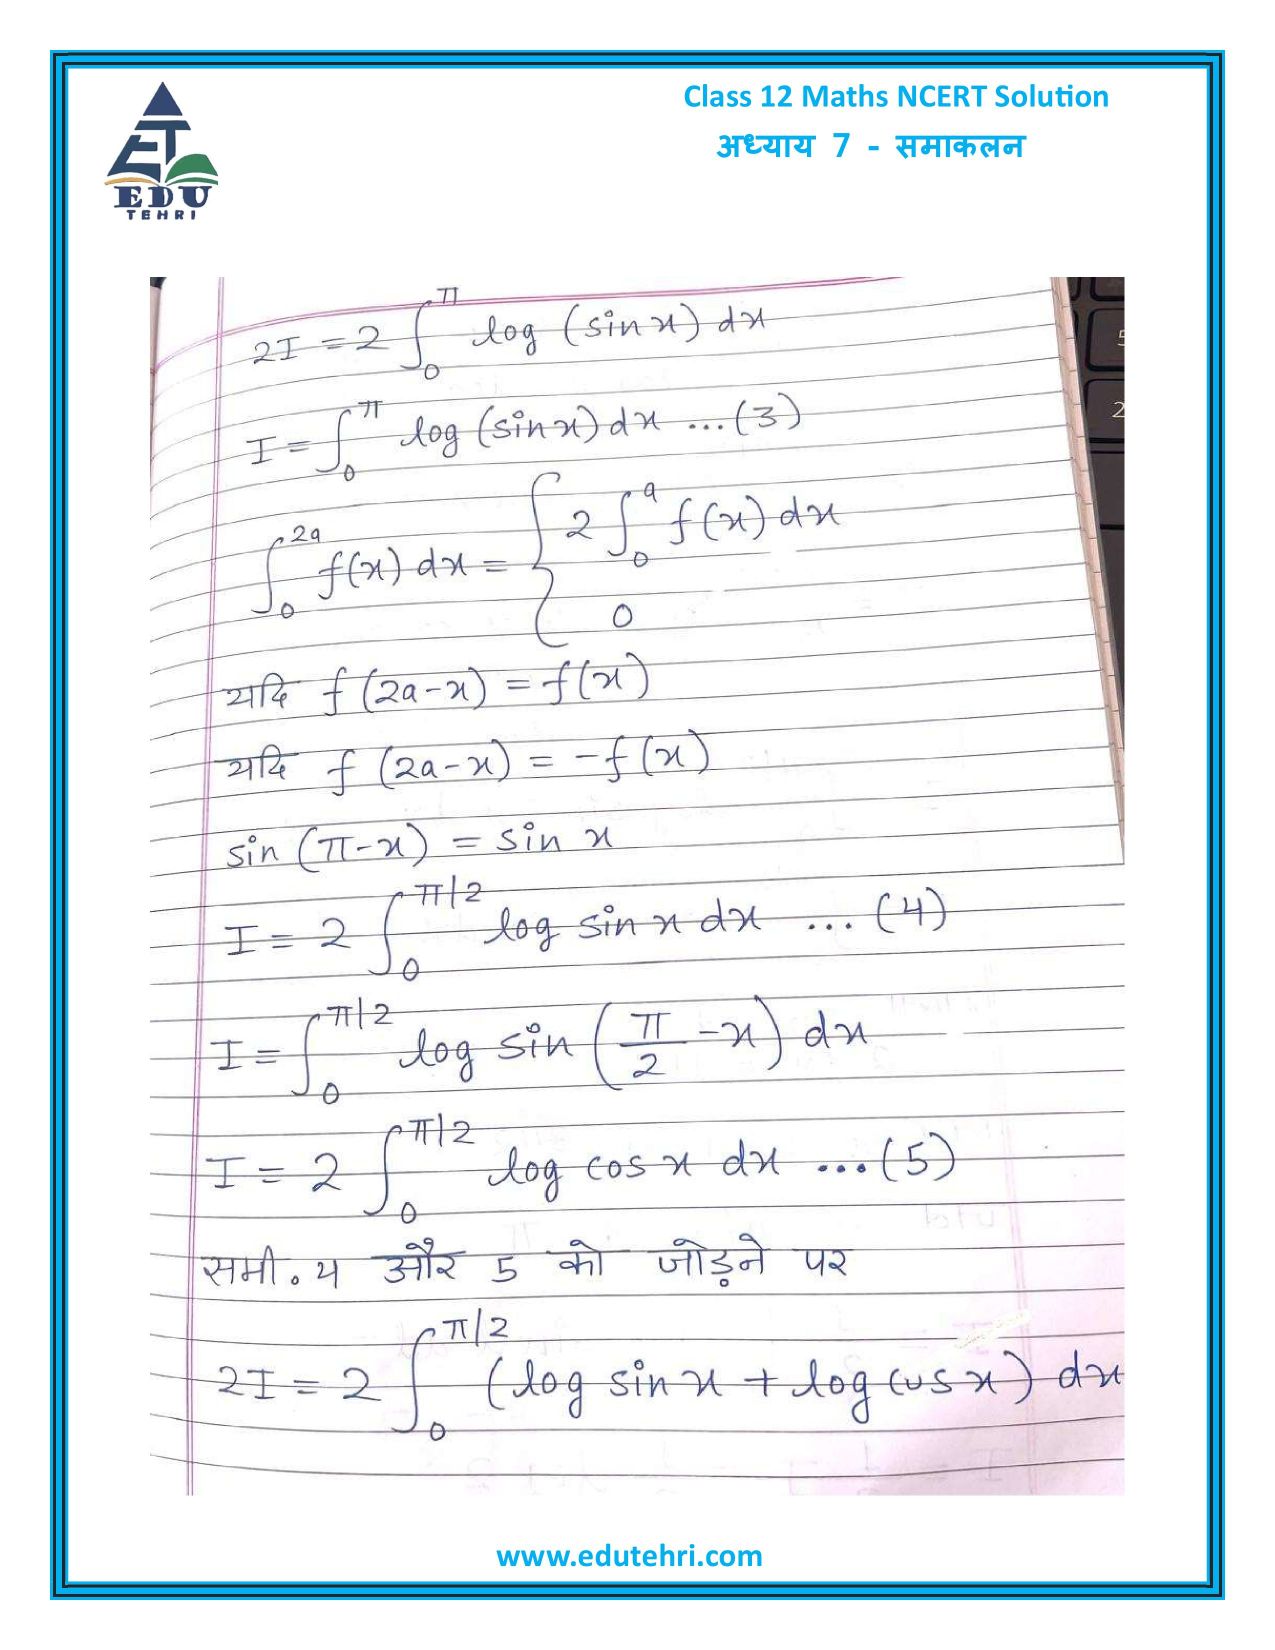 Class 12 Maths NCERT Solution
अध्याय 7 - समाकलन
EDU
TEHRI
2I = 2 ∫₀^π log (sin x) dx
I = ∫₀^π log (sin x) dx ...(3)
∫₀^2a f(x) dx = { 2 ∫₀^a f(x) dx
0
यदि f (2a-x) = f(x)
यदि f (2a-x) = -f(x)
sin (π-x) = sin x
I = 2 ∫₀^π/2 log sin x dx ...(4)
I = ∫₀^π/2 log sin (π/2 - x) dx
I = 2 ∫₀^π/2 log cos x dx ...(5)
समी. 4 और 5 को जोड़ने पर
2I = 2 ∫₀^π/2 (log sin x + log cos x) dx
www.edutehri.com